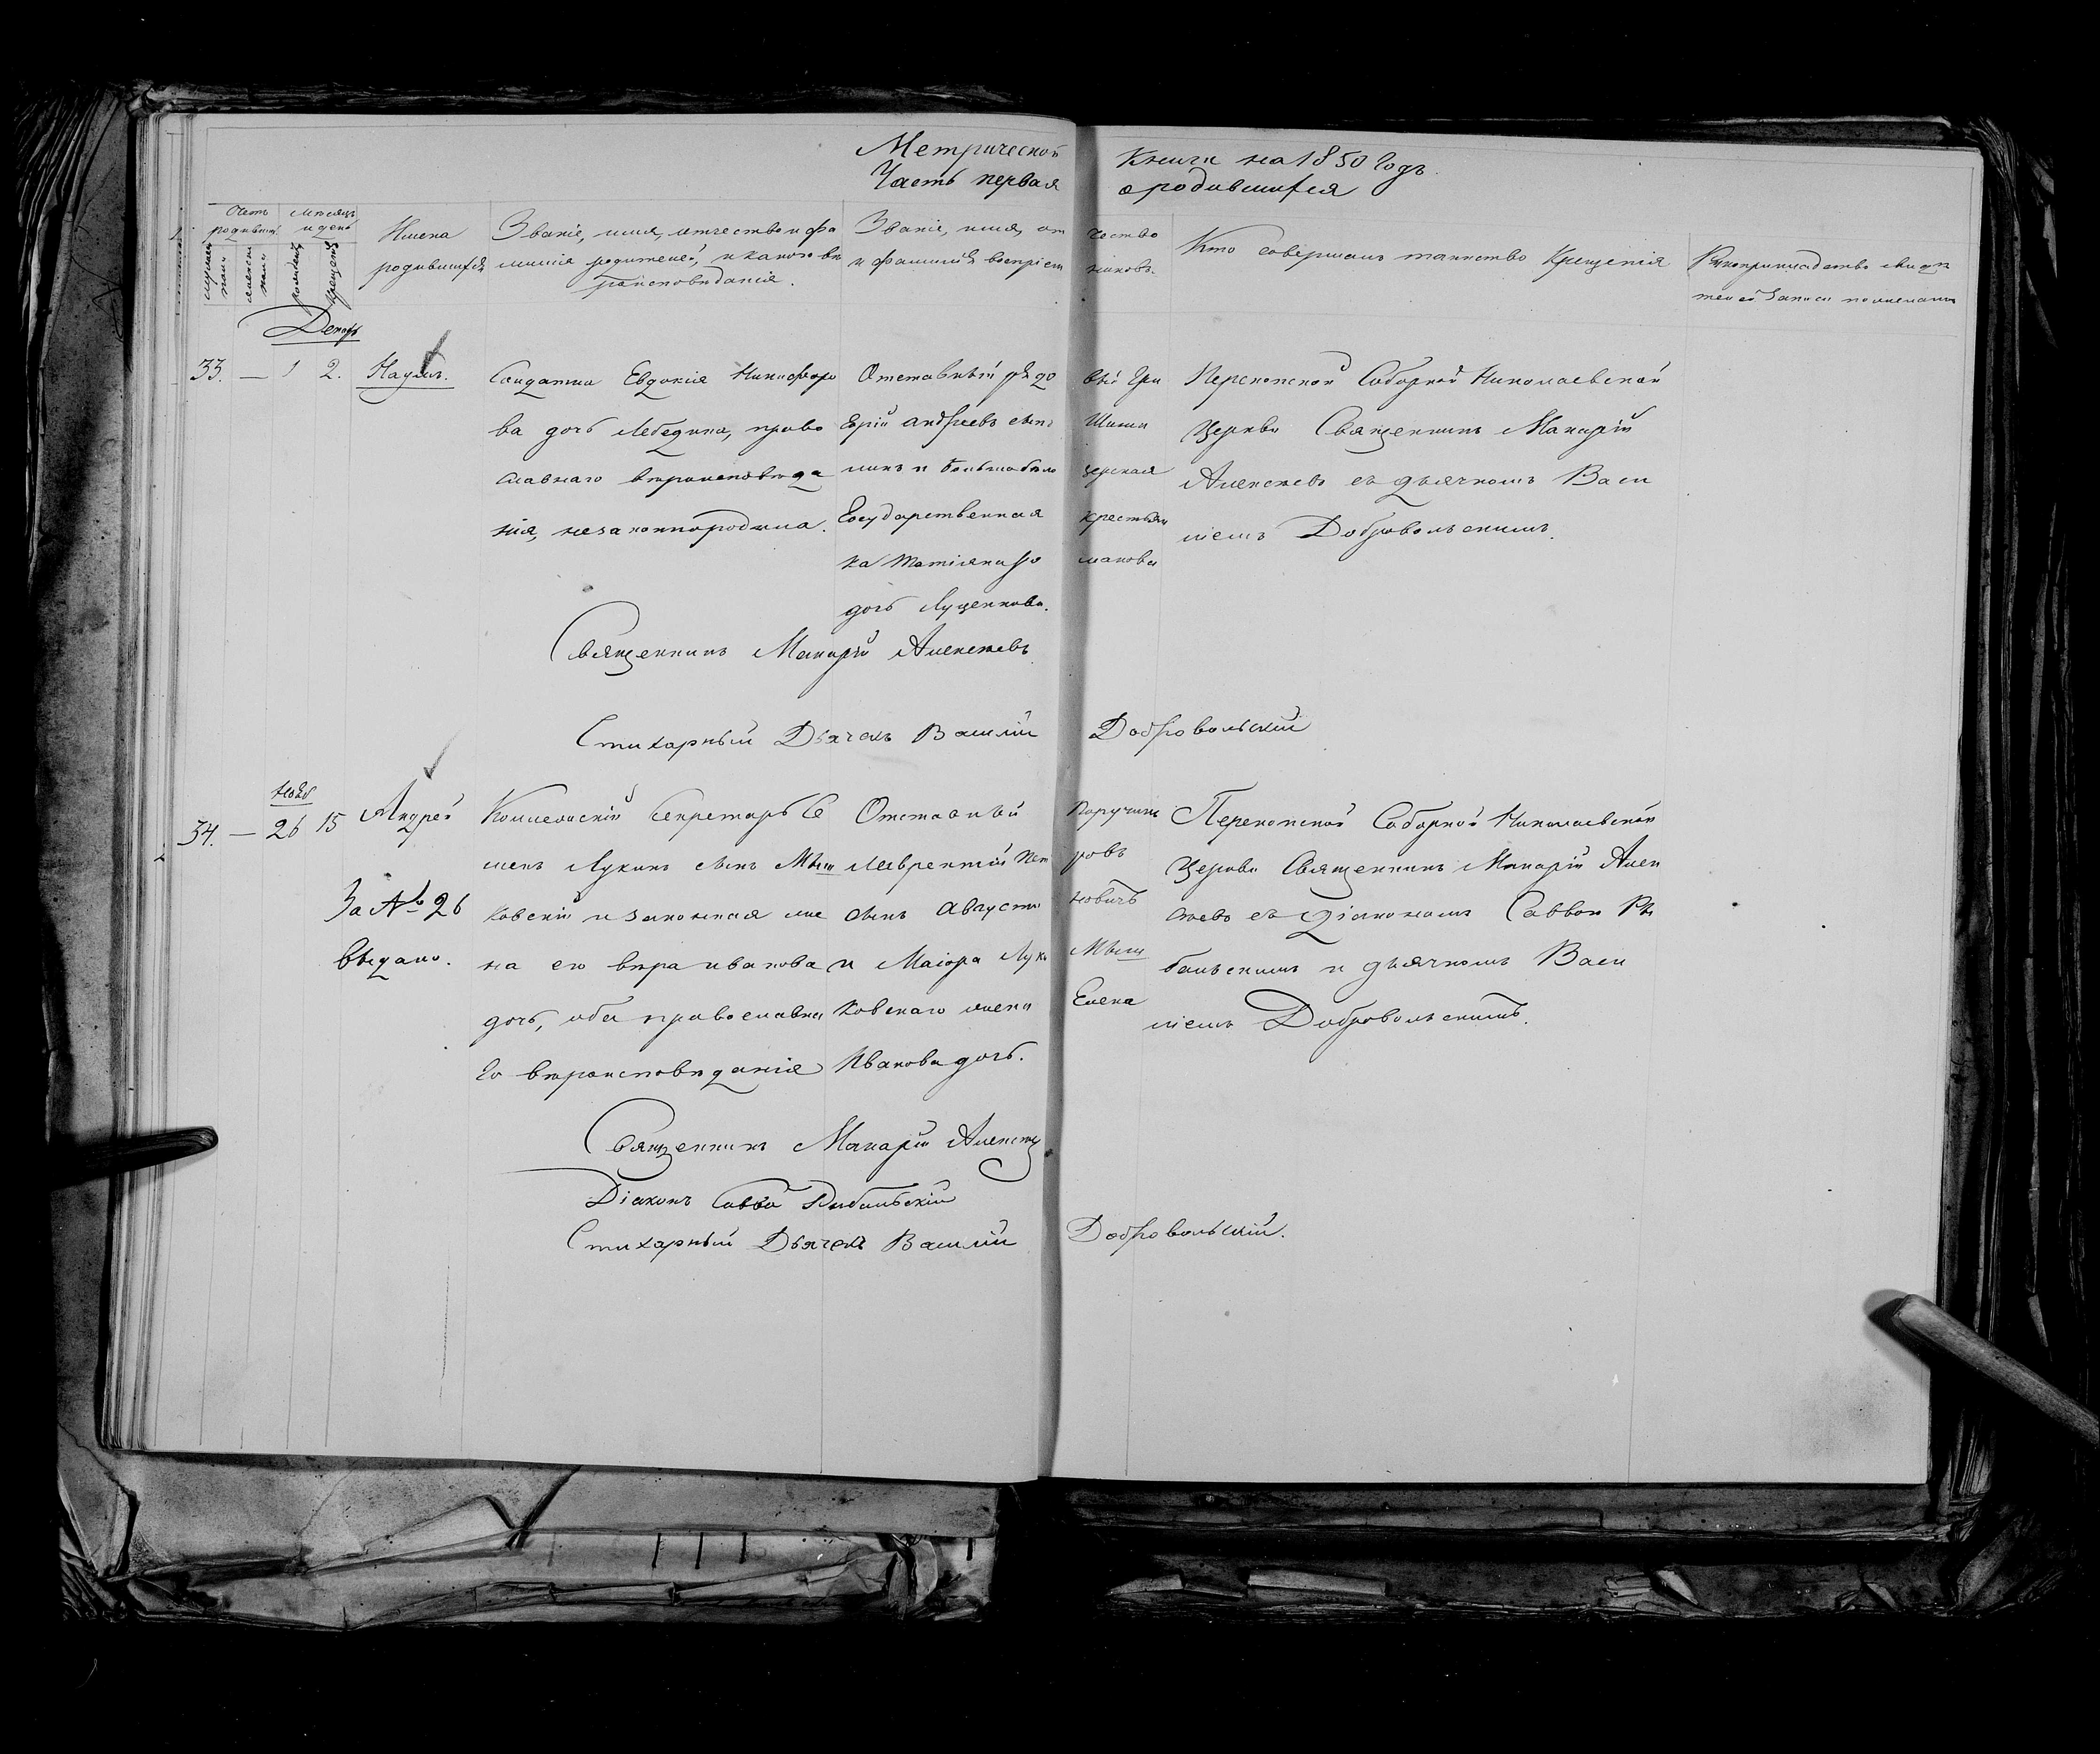 Метрической Книги на 1850 Годъ.
Часть первая о родившихся
Счетъ родивших.
мужеска пола
женска пола
мѣсяцъ и день
рожденія
крещенія
Имена
родившихся
Званіе, имя, отчество и фа
милія родителей, и какого вѣ
роисповѣданія.
Званіе, имя, отчество
и фамилія воспріемниковъ.
Кто совершалъ таинство Крещенія
Рукоприкладство свидѣ
телей записи по желанію
Декабр
33. — 1 2. Наумъ.
Солдатка Евдокія Никифоро
ва дочь Лебедина, право
славнаго вѣроисповѣда
нія, незаконнородила.
Отставный рядовый Гри
горій Андреевъ сынъ Шики
Государственная крестьян
ка
дочь Луценкова.
Перекопской Соборной Николаевской
Церкви Священникъ Макарій
Алексѣевъ съ дьячкомъ Васи
ліемъ Добровольскимъ.
Священникъ Макарій Алексѣевъ
Стихарный Дьячекъ Василій Добровольскій
Нояб
34. — 26 15 Андрей
За № 26
выдано.
Коллежскій Секретарь Се
менъ Лукинъ сынъ Мыш
ковскій и законная же
на его вѣра иванова
дочь, оба православна
го вѣроисповѣданія
Отставный Поручикъ
Лаврентій Петровъ
сынъ Августиновичъ
и Маіора Луки Мыш
ковскаго жена Елена
Иванова дочь.
Перекопской Соборной Николаевской
Церкви Священникъ Макарій Алек
сѣевъ съ Діакономъ Саввою Ры
бальскимъ и дьячкомъ Васи
ліемъ Добровольскимъ.
Священникъ Макарій Алексѣ
Діаконъ Савва Рыбальскій
Стихарный Дьячекъ Василій Добровольскій.